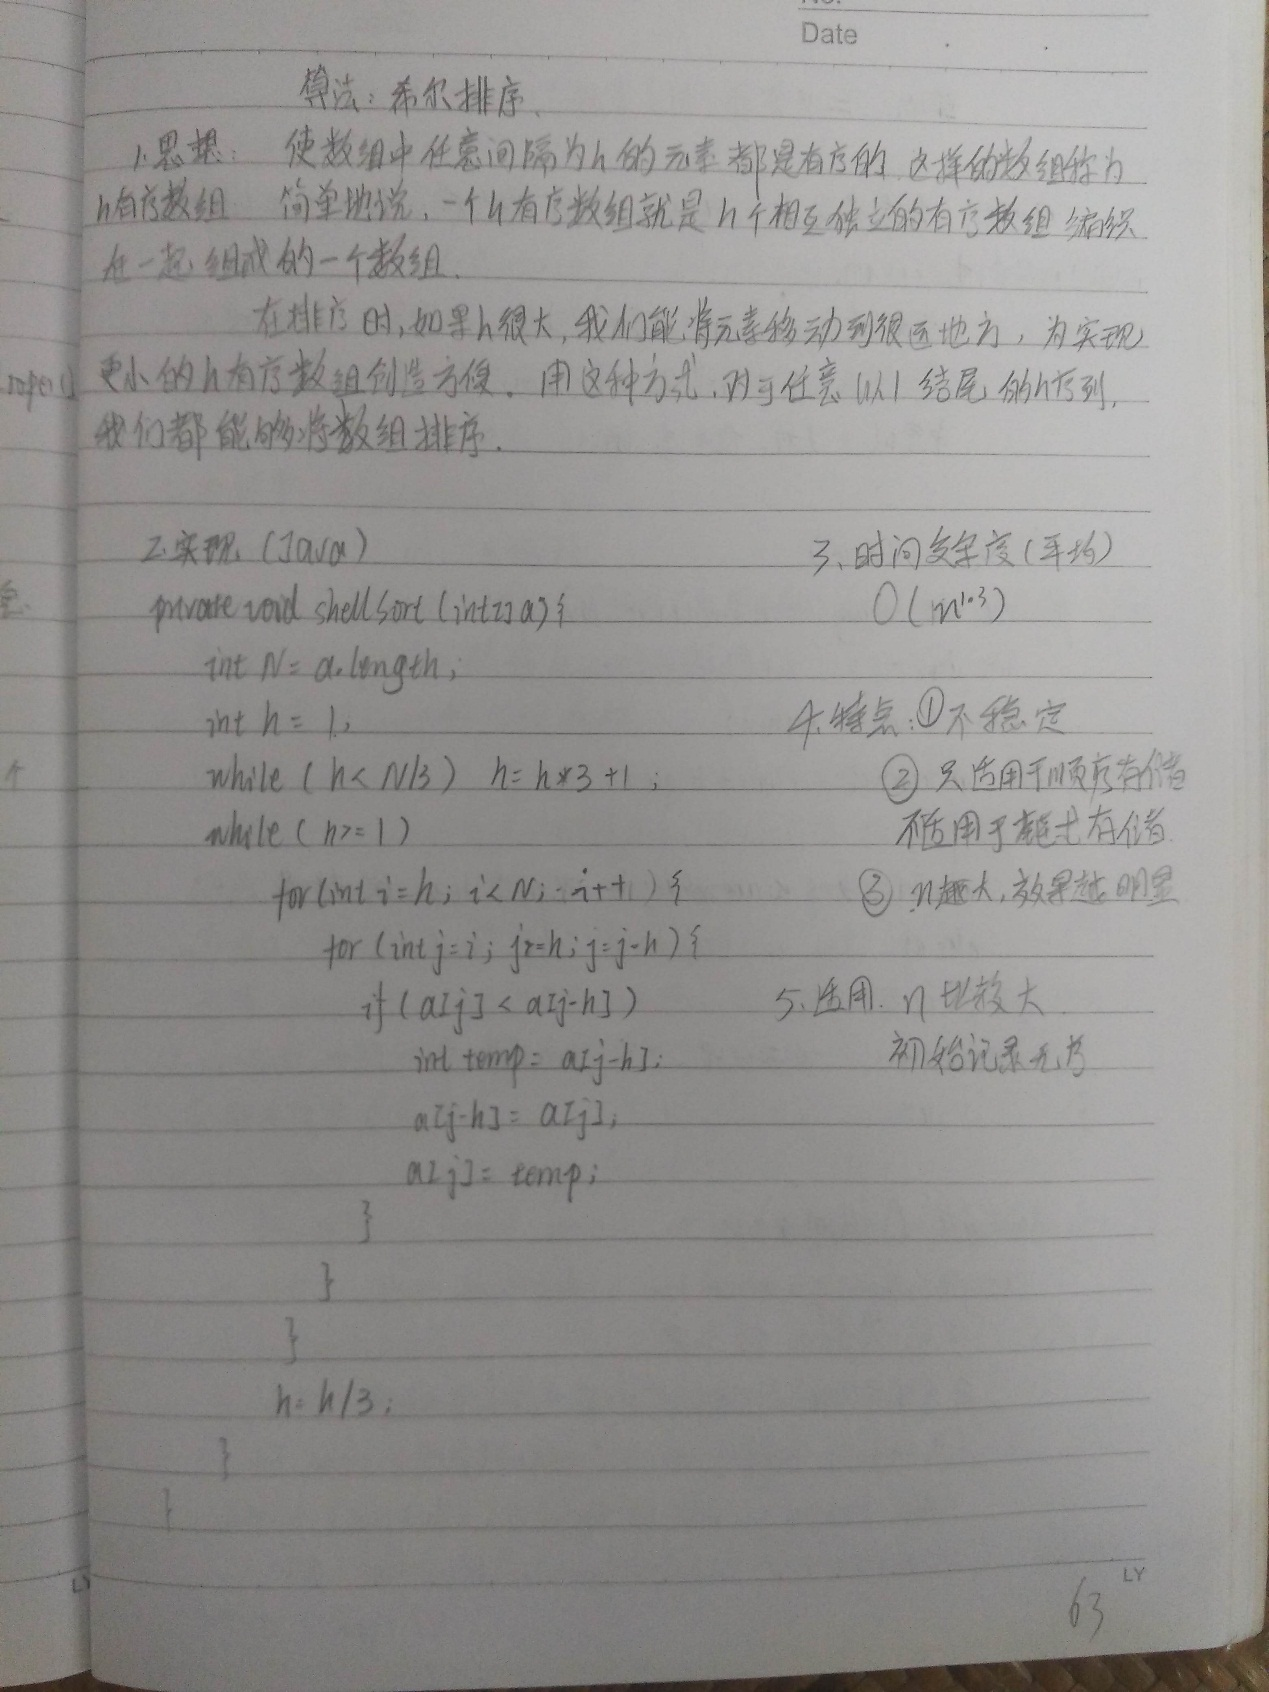 No.
Date
算法：希尔排序.
1.思想： 使数组中任意间隔为h的元素都是有序的 这样的数组称为
h有序数组 简单地说，一个h有序数组就是h个相互独立的有序数组编织
在一起组成的一个数组.
在排序时,如果h很大,我们能将元素移动到很远地方，为实现
更小的h有序数组创造方便. 用这种方式,对于任意以1结尾的h序列,
我们都能够将数组排序.
2.实现 (Java)
private void shellSort (int[] a) {
int N = a.length;
int h = 1;
while ( h < N/3 ) h = h*3+1 ;
while ( h >= 1 )
for (int i=h; i<N; i++) {
for (int j=i; j>=h; j=j-h) {
if (a[j] < a[j-h])
int temp = a[j-h];
a[j-h] = a[j];
a[j] = temp;
}
}
}
h = h/3;
}
}
3、时间复杂度(平均)
O(n^1.3)
4.特点：①不稳定
② 只适用于顺序存储
不适用于链式存储
③ n越大,效果越明显
5.适用. n比较大
初始记录无序
LY
63